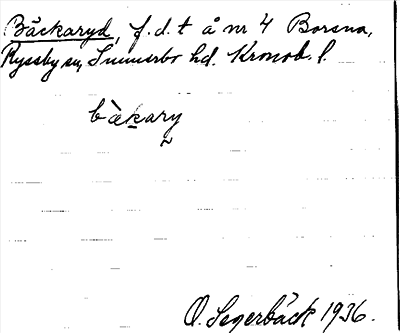 Bäckaryd, f.d.t å nr 4 Borsna,
Ryssby sn, Sunnerbo hd. Kronob. l.
bàkary
O. Segerbäck 1936.